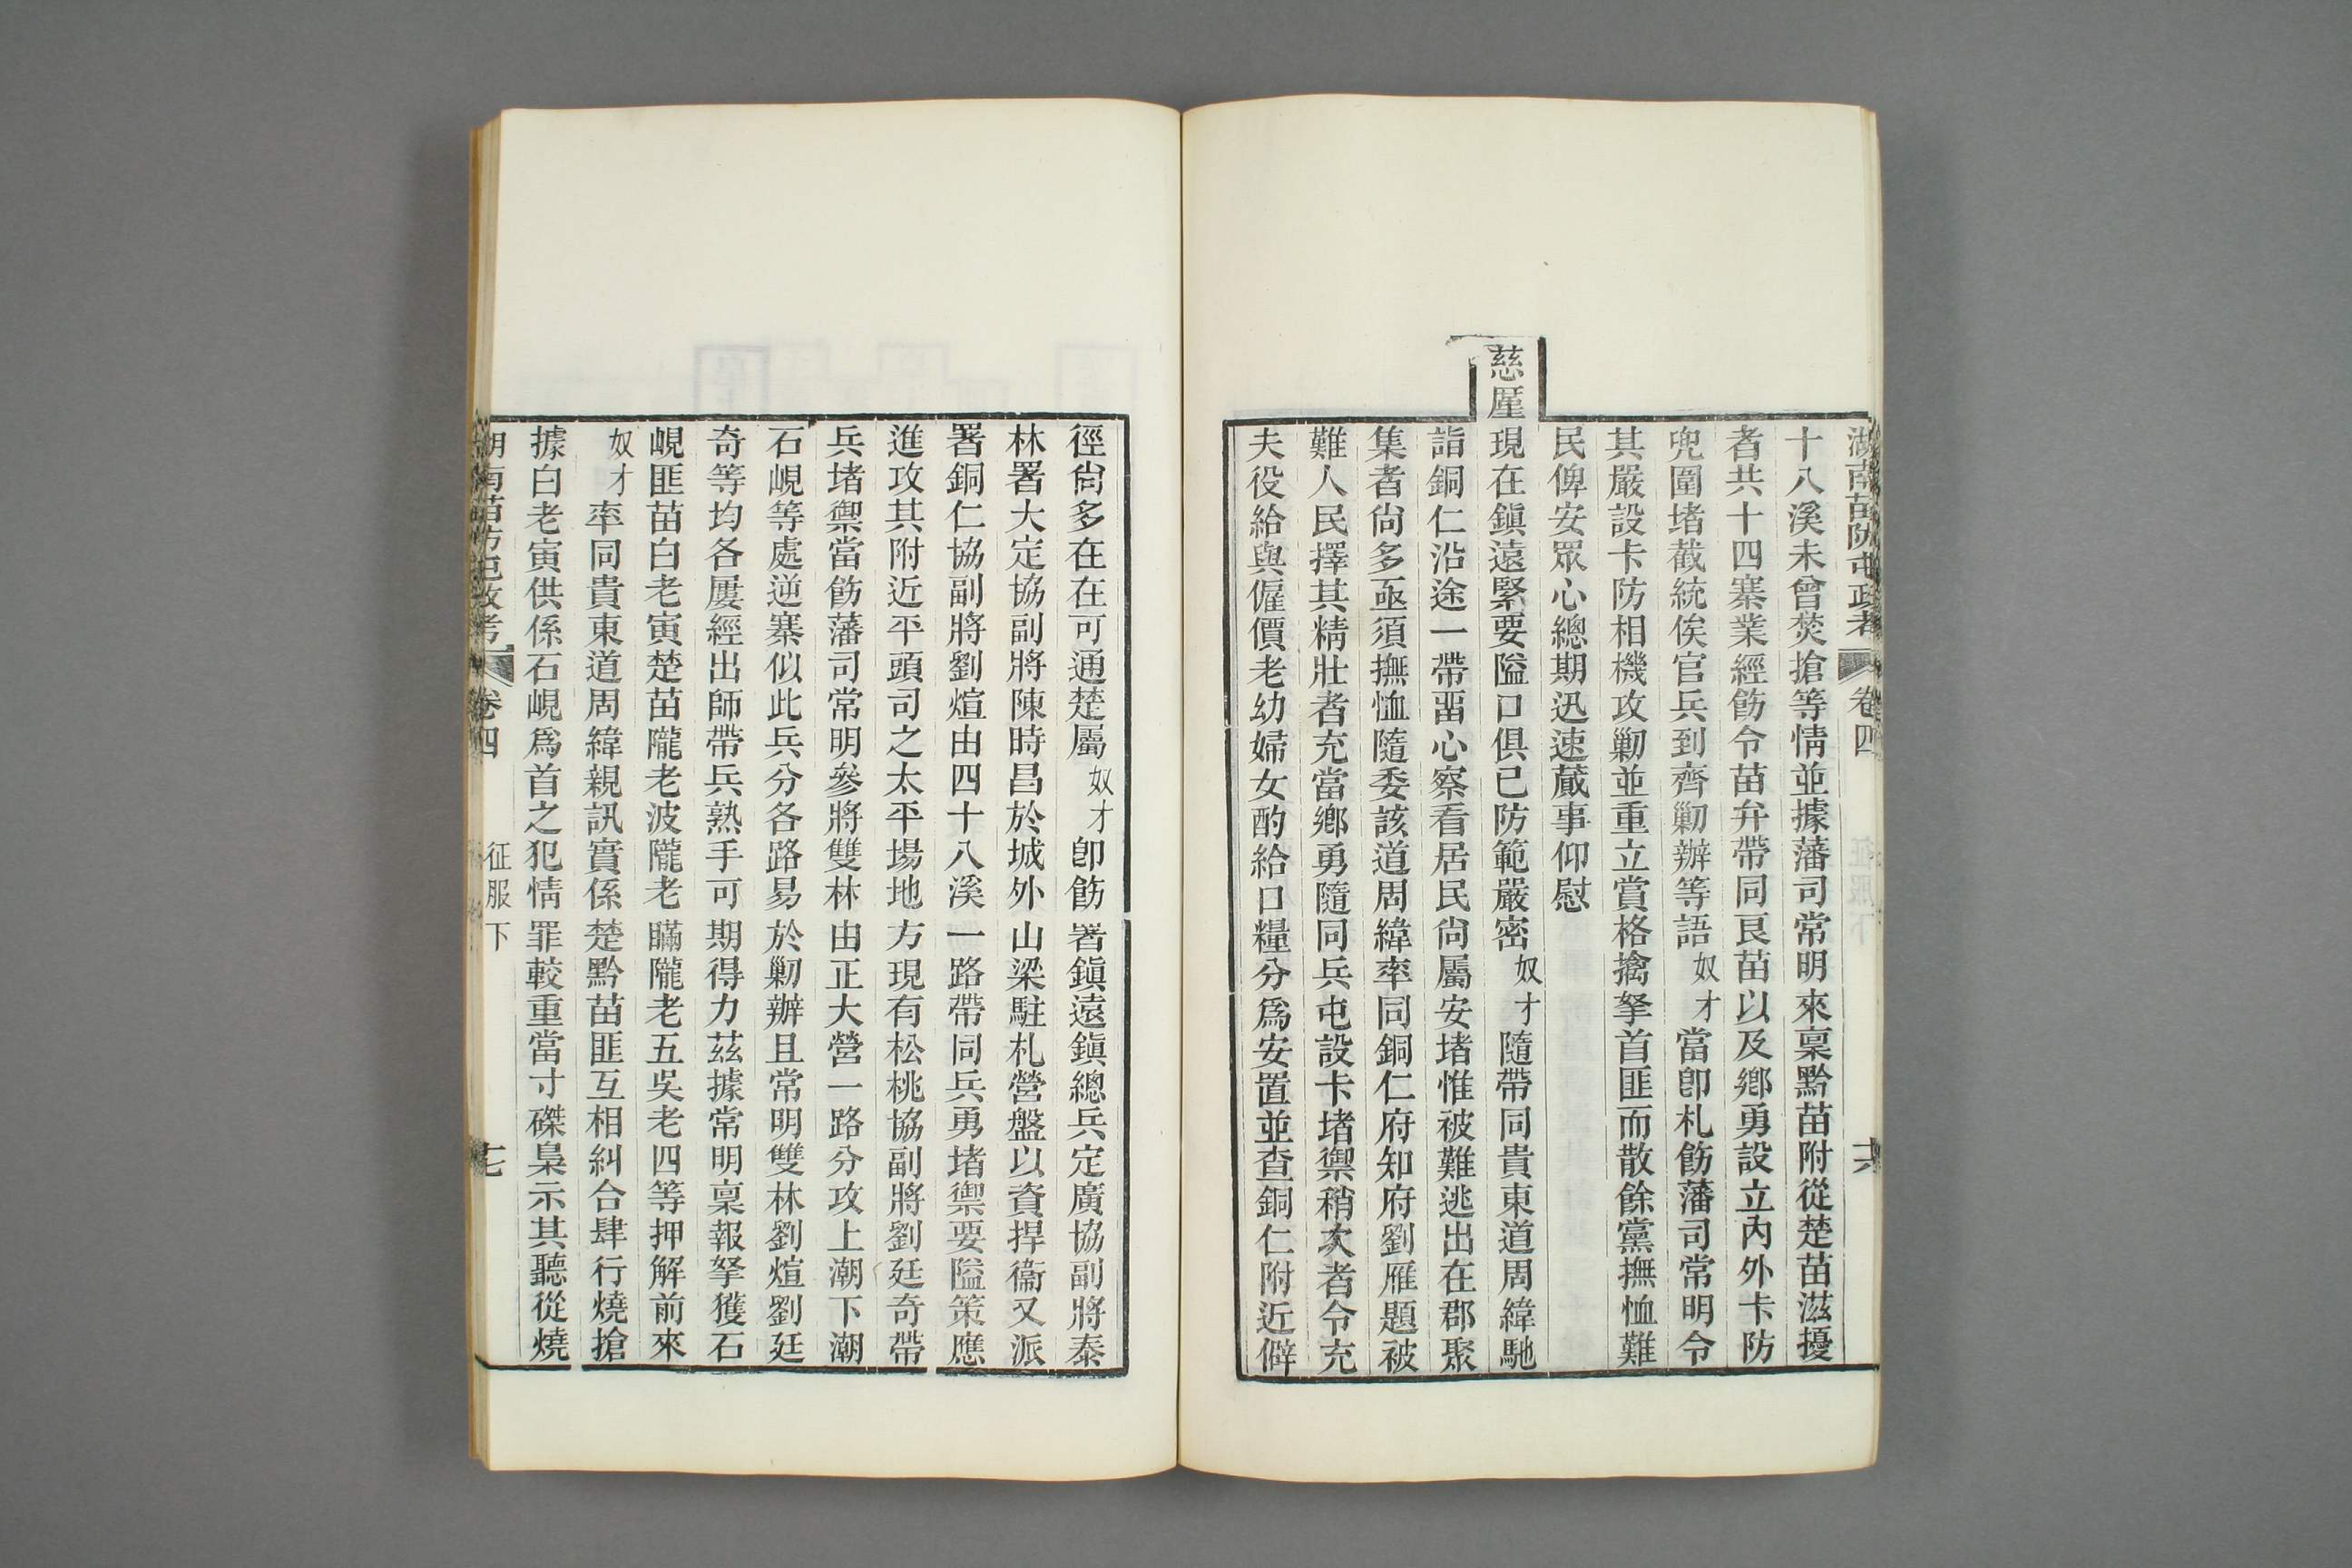 湖南苗防屯政考 卷四 十六
十八溪未曾焚搶等情並據藩司常明來稟黔苗附從楚苗滋擾
者共十四寨業經飭令苗弁帶同良苗以及鄉勇設立內外卡防
兜圍堵截統俟官兵到齊勦辦等語奴才當卽札飭藩司常明令
其嚴設卡防相機攻勦並重立賞格擒拏首匪而散餘黨撫恤難
民俾安眾心總期迅速蕆事仰慰
慈廑現在鎭遠緊要隘口俱已防範嚴密奴才隨帶同貴東道周緯馳
詣銅仁沿途一帶畱心察看居民尙屬安堵惟被難逃出在郡聚
集者尙多亟須撫恤隨委該道周緯率同銅仁府知府劉雁題被
難人民擇其精壯者充當鄉勇隨同兵屯設卡堵禦稍次者令充
夫役給與僱價老幼婦女酌給口糧分爲安置並查銅仁附近僻
徑尙多在在可通楚屬奴才卽飭署鎭遠鎭總兵定廣協副將泰
林署大定協副將陳時昌於城外山梁駐札營盤以資捍衞又派
署銅仁協副將劉煊由四十八溪一路帶同兵勇堵禦要隘策應
進攻其附近平頭司之太平場地方現有松桃協副將劉廷奇帶
兵堵禦當飭藩司常明參將雙林由正大營一路分攻上潮下潮
石峴等處逆寨似此兵分各路易於勦辦且常明雙林劉煊劉廷
奇等均各屢經出師帶兵熟手可期得力茲據常明稟報拏獲石
峴匪苗白老寅楚苗隴老波隴老瞞隴老五吳老四等押解前來
奴才率同貴東道周緯親訊實係楚黔苗匪互相糾合肆行燒搶
據白老寅供係石峴爲首之犯情罪較重當寸磔梟示其聽從燒
湖南苗防屯政考 卷四 征服下 十七